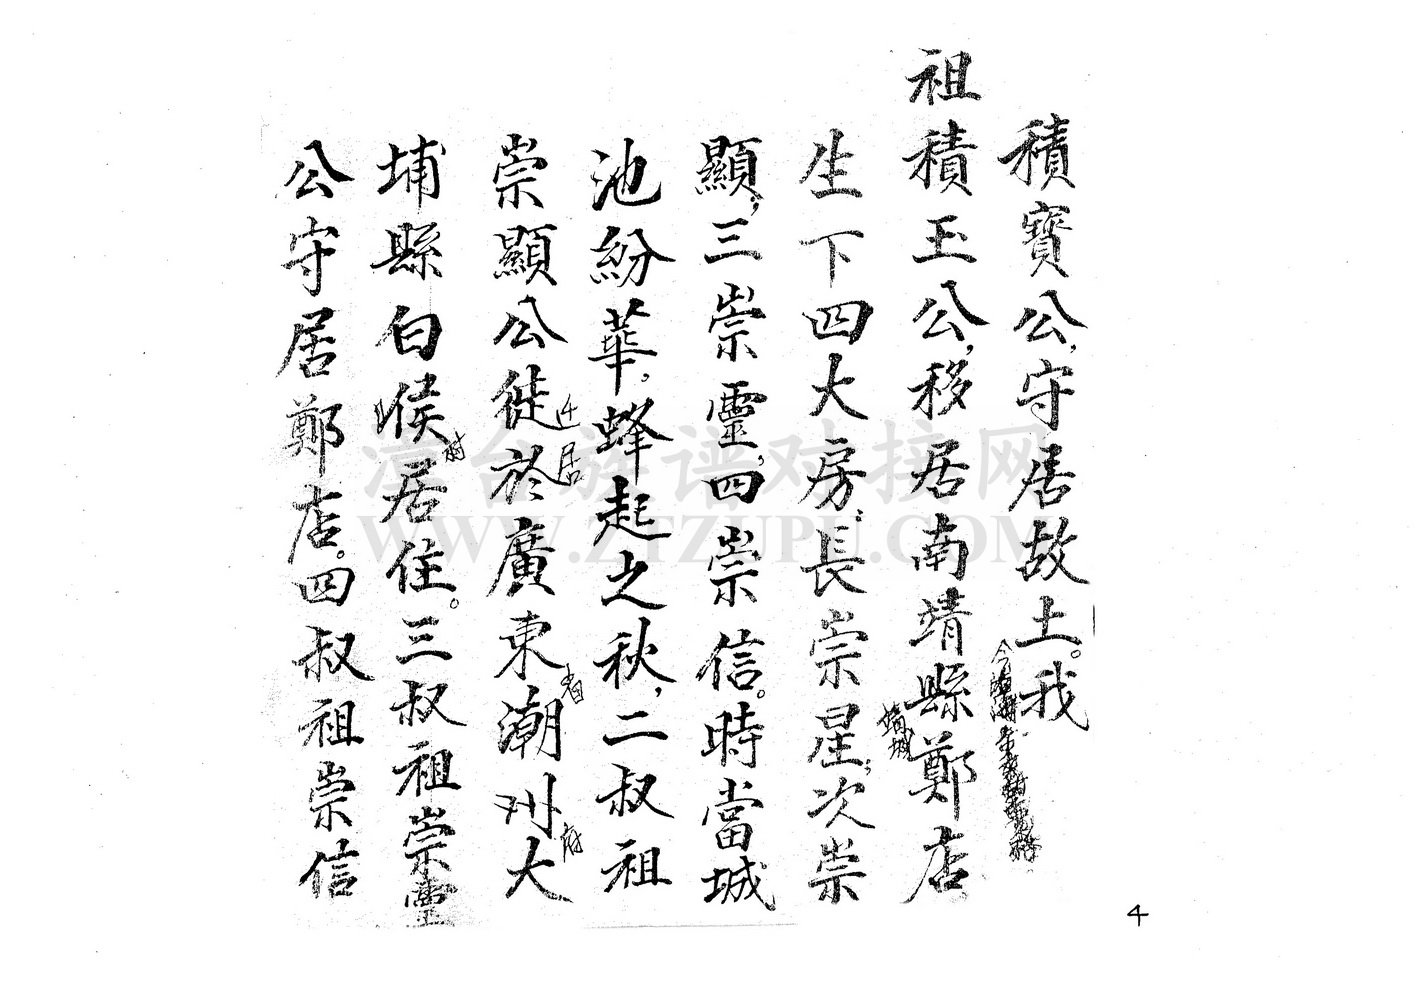 積寶公,守居故土。我
祖積玉公,移居南靖縣鄭店
靖城
生下四大房,長崇星,次崇
顯,三崇靈,四崇信。時當城
池紛華。蜂起之秋,二叔祖
崇顯公徙於廣東潮州大
迁居
省
府
埔縣白堠居住。三叔祖崇靈
村
公守居鄭店。四叔祖崇信
漳台族谱对接网
WWW.ZTZUPU.COM
4